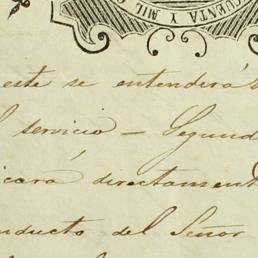 CUENTA Y MIL
este se entenderá
servicio — Segund
icará directament
nducto del Señor